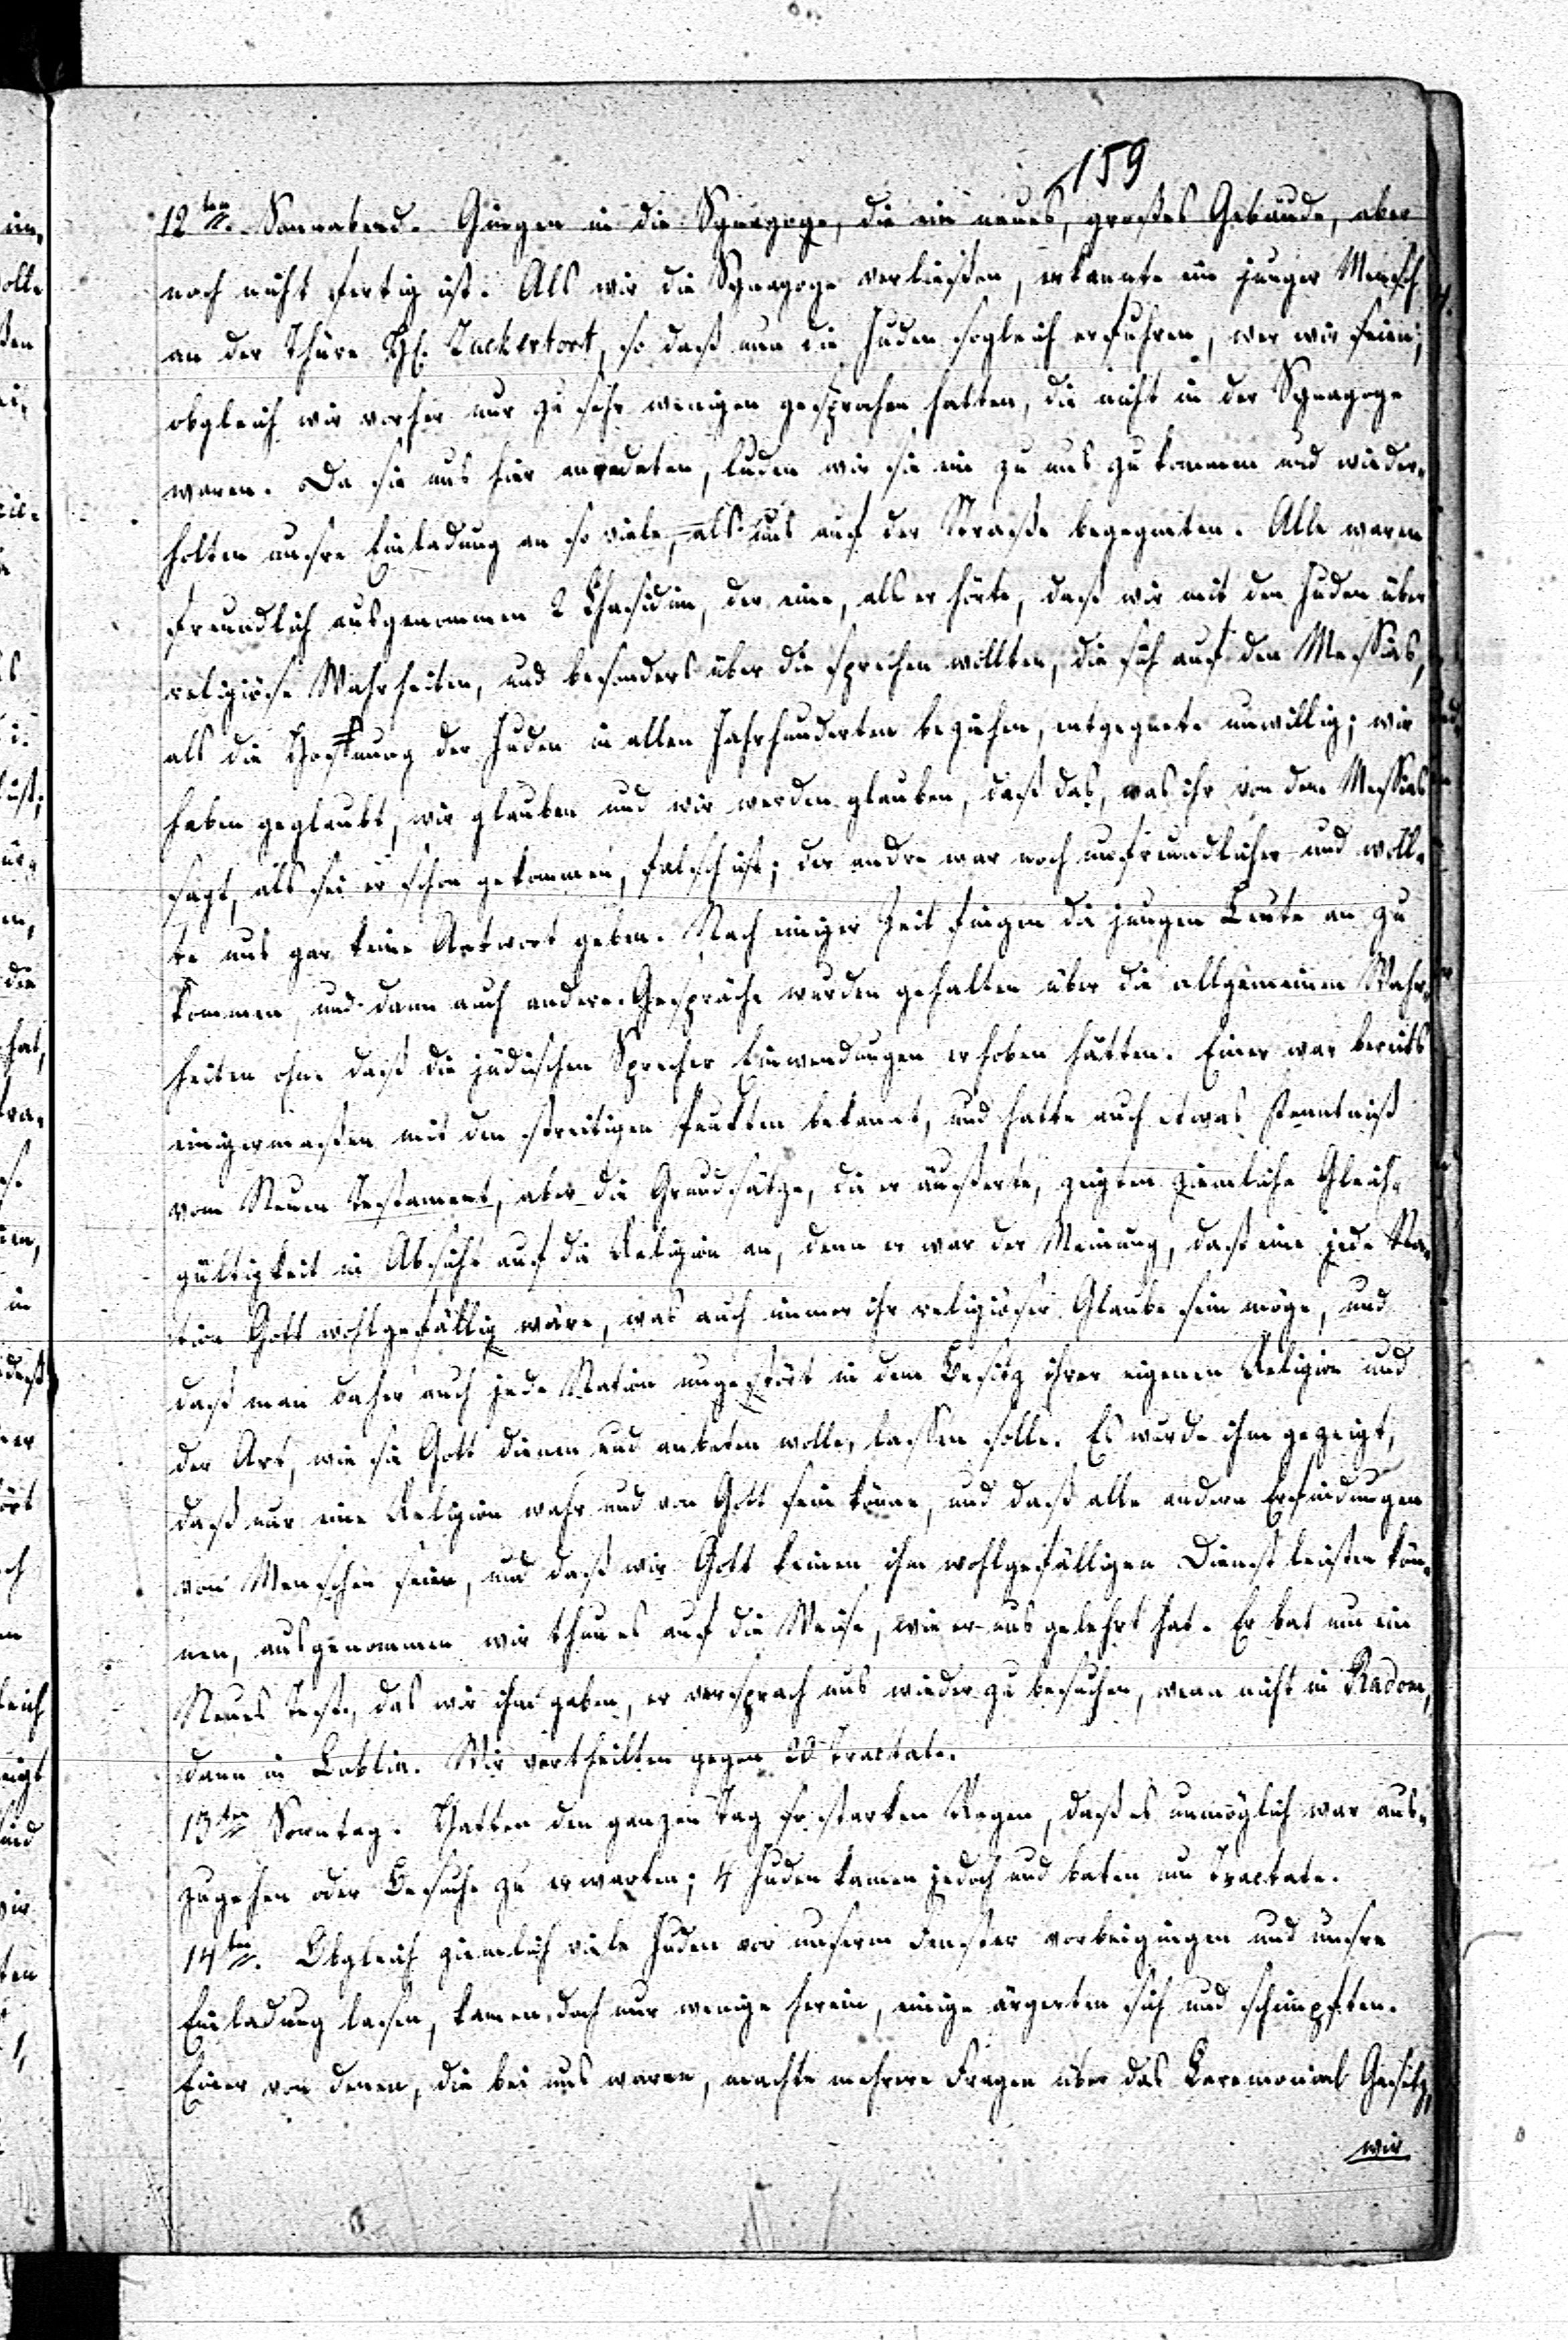 159
12ten. Sonnabend. Gingen in die Synagoge, die ein neues, großes Gebäude, aber
noch nicht fertig ist. Als wir die Synagoge verließen, erkannte ein junger Mensch
an der Thüre H. Zuckertort, so daß nun die Juden sogleich erfuhren, wer wir seien;
obgleich wir vorher nur zu sehr wenigen gesprochen hatten, die nicht in der Synagoge
waren. Da sie uns hier anredeten, luden wir sie ein zu uns zu kommen und wieder-
holten unsre Einladung an so viele, als uns auf der Straße begegneten. Alle waren
freundlich ausgenommen 2 Chasidim, der eine, als er hörte, daß wir mit den Juden über
religiöse Wahrheiten, und besonders über die sprechen wollten, die sich auf den Messias,
als die Hoffnung der Juden in allen Jahrhunderten beziehen, entgegnete unwillig; wir
haben geglaubt, wir glauben und wir werden glauben, daß das, was ihr von dem Messias
sagt, als sei er schon gekommen, falsch ist; der andre war noch unfreundlicher und woll-
te uns gar keine Antwort geben. Nach einiger Zeit fingen die jungen Leute an zu
kommen und dann auch andere. Gespräche wurden gehalten über die allgemeinen Wahr-
heiten ohne daß die jüdischen Sprecher Einwendungen erhoben hätten. Einer war bereits
einigermaßen mit den streitigen Punkten bekannt, und hatte auch etwas Kenntniß
vom Neuen Testament, aber die Grundsätze, die er äußerte, zeigten ziemliche Gleich-
gültigkeit in Absicht auf die Religion an, denn er war der Meinung, daß eine jede Na-
tion Gott wohlgefällig wäre, was auch immer ihr religiöser Glaube sein möge, und
daß man daher auch jede Nation ungestört in dem Besitz ihrer eigenen Religion und
der Art, wie sie Gott dienen und anbeten wolle, lassen solle. Es wurde ihm gezeigt,
daß nur eine Religion wahr und von Gott sein könne, und daß alle andern Erfindungen
von Menschen seien, und daß wir Gott keinen ihm wohlgefälligen Dienst leisten kön-
nen, ausgenommen wir thun es auf die Weise, wie er uns gelehrt hat. Er bat um ein
Neues Test., das wir ihm gaben, er versprach uns wieder zu besuchen, wenn nicht in Radom,
dann in Lublin. Wir vertheilten gegen 20 Tractate.
13ten Sonntag. Hatten den ganzen Tag so starken Regen, daß es unmöglich war aus-
zugehen oder Besuche zu erwarten; 4 Juden kamen jedoch und baten um Tractate.
14ten. Obgleich ziemlich viele Juden vor unserm Fenster vorbeigingen und unsre
Einladung lasen, kamen doch nur wenige herein, einige ärgerten sich und schimpften.
Einer von denen, die bei uns waren, machte mehrere Fragen über das Ceremonial Gesetz,
wir